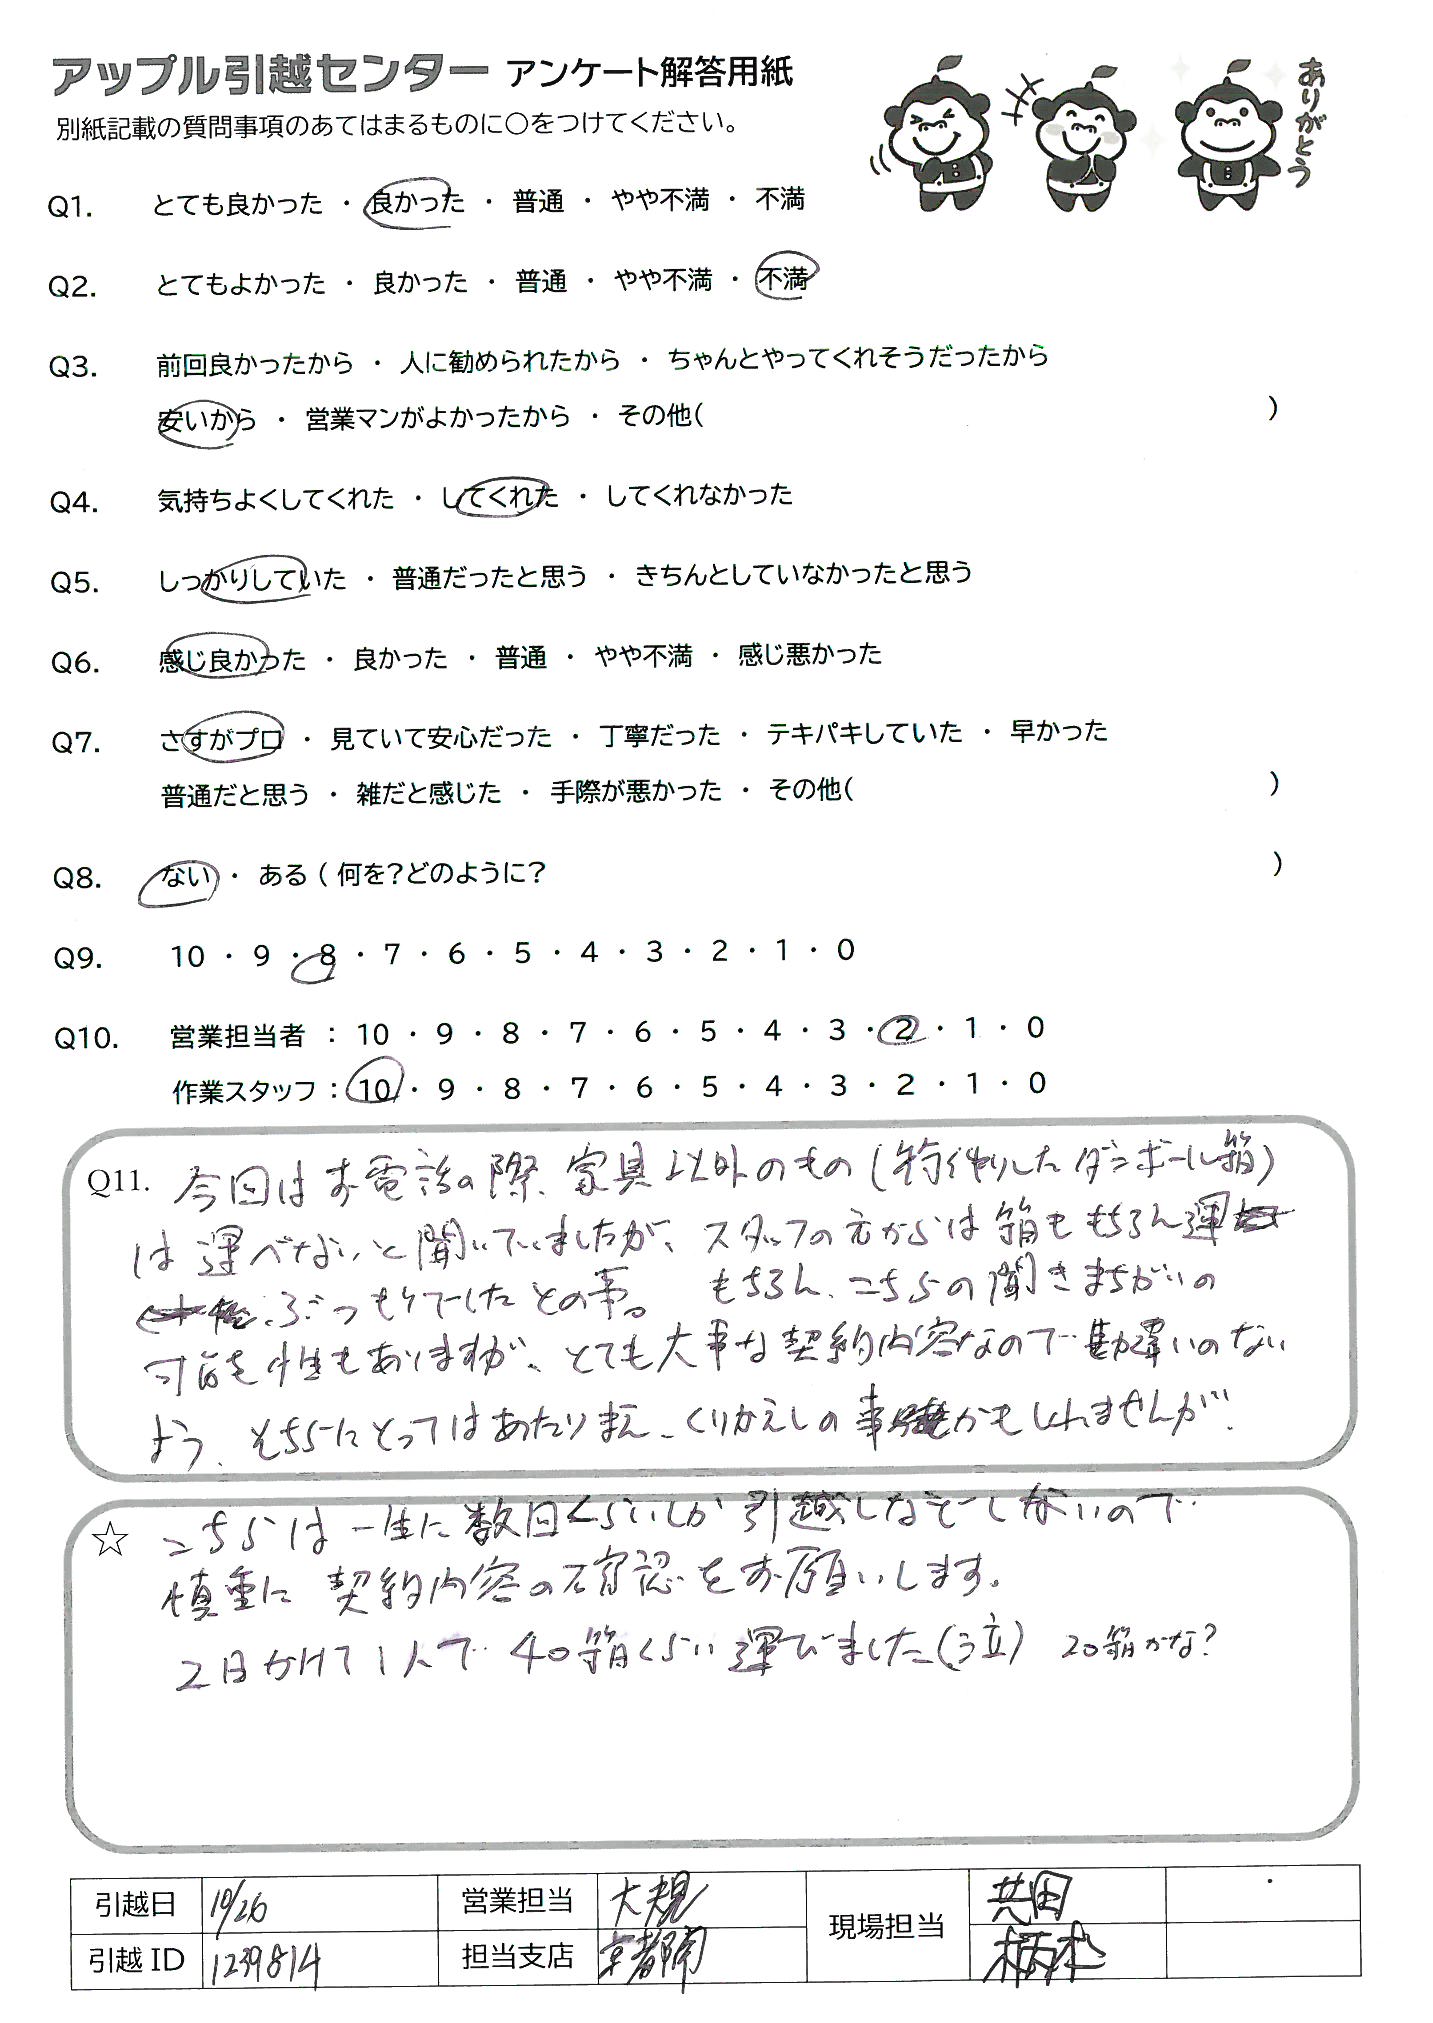 アップル引越センター アンケート解答用紙
別紙記載の質問事項のあてはまるものに〇をつけてください。
ありがとう
Q1. とても良かった ・ 良かった ・ 普通 ・ やや不満 ・ 不満
Q2. とてもよかった ・ 良かった ・ 普通 ・ やや不満 ・ 不満
Q3. 前回良かったから ・ 人に勧められたから ・ ちゃんとやってくれそうだったから
安いから ・ 営業マンがよかったから ・ その他( )
Q4. 気持ちよくしてくれた ・ してくれた ・ してくれなかった
Q5. しっかりしていた ・ 普通だったと思う ・ きちんとしていなかったと思う
Q6. 感じ良かった ・ 良かった ・ 普通 ・ やや不満 ・ 感じ悪かった
Q7. さすがプロ ・ 見ていて安心だった ・ 丁寧だった ・ テキパキしていた ・ 早かった
普通だと思う ・ 雑だと感じた ・ 手際が悪かった ・ その他( )
Q8. ない ・ ある ( 何を?どのように? )
Q9. 10 ・ 9 ・ 8 ・ 7 ・ 6 ・ 5 ・ 4 ・ 3 ・ 2 ・ 1 ・ 0
Q10. 営業担当者 : 10 ・ 9 ・ 8 ・ 7 ・ 6 ・ 5 ・ 4 ・ 3 ・ 2 ・ 1 ・ 0
作業スタッフ : 10 ・ 9 ・ 8 ・ 7 ・ 6 ・ 5 ・ 4 ・ 3 ・ 2 ・ 1 ・ 0
Q11. 今回はお電話の際、家具以外のもの(荷作りしたダンボール箱)
は運べないと聞いていましたが、スタッフの方からは箱ももちろん運
ぶつもりでしたとの事。 もちろん、こちらの聞きまちがいの
可能性もありますが、とても大事な契約内容なので勘違いのない
よう、そちらにとってはあたりまえ、くりかえしの事かもしれませんが、
☆ こちらは一生に数回くらいしか引越しなぞしないので
慎重に契約内容の確認をお願いします。
2日かけて1人で40箱くらい運びました(泣) 20箱かな?
引越日 10/26 営業担当 大規 現場担当 共田
引越 ID 1239814 担当支店 京都南 柄本